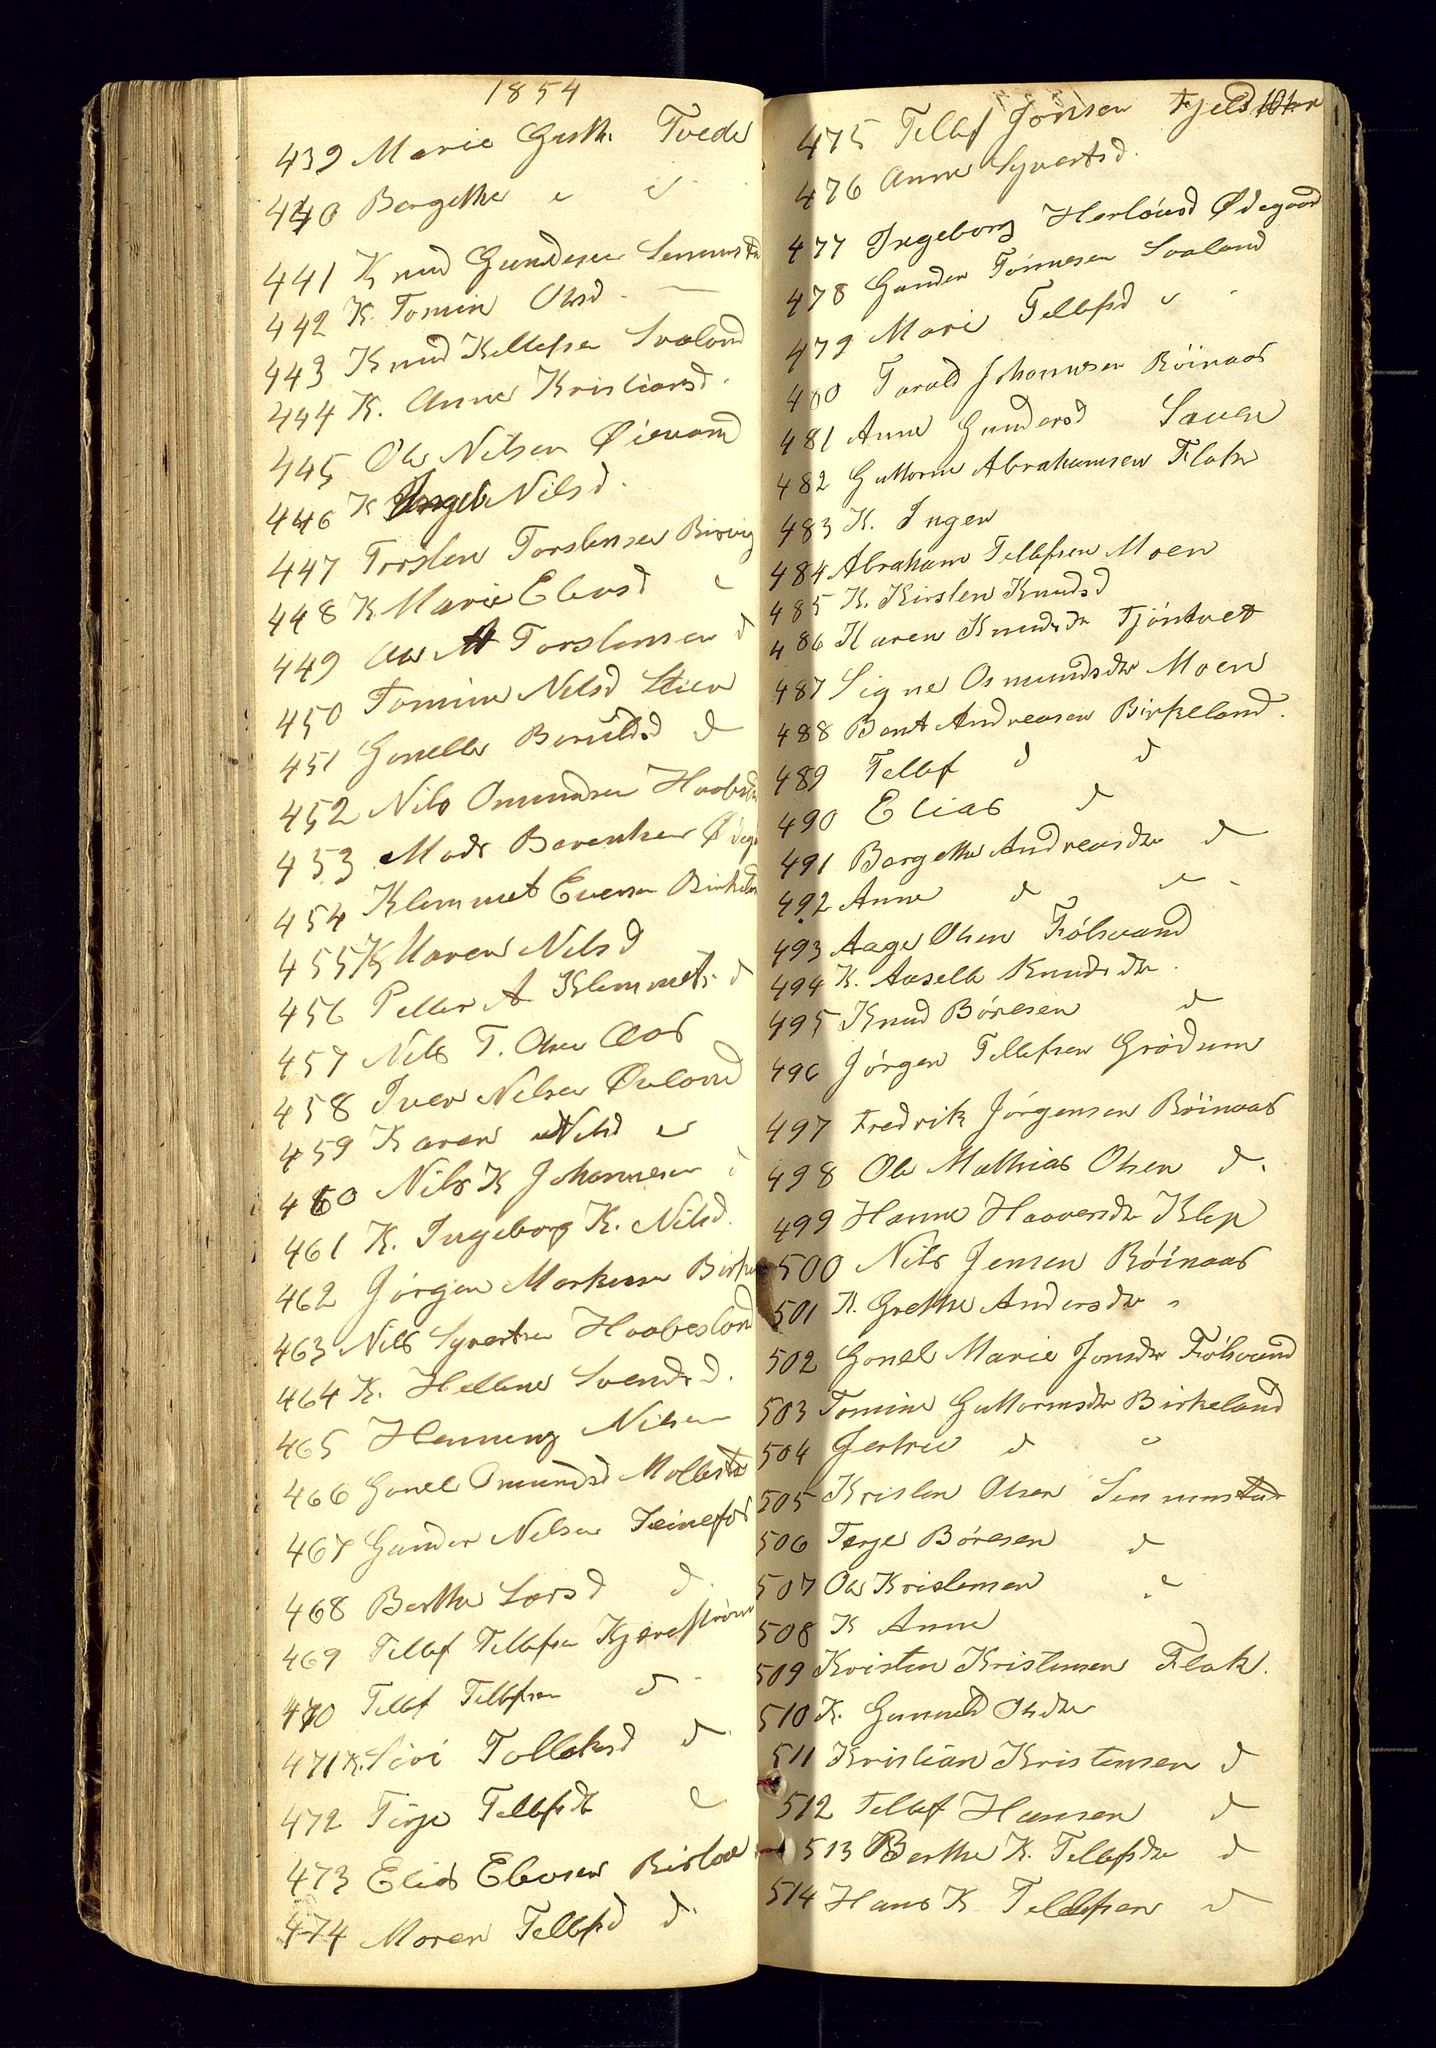 1854
439 Marie Guth. Tvede
440 Bergethe " "
441 Knud Gundersen
442 K. Tomin Olsd
443 Knud Kellefsen Svaland
444 K. Anne Kristiansd.
445 Ole Nilsen Øievand
446 K Nilsd.
447 Torsten Torstensen
448 K Marie Eliasd "
449 Torstensen d
450 Tomine Nilsd Stien
451 Gonelle d
452 Nils Omundsen
453 Mads Berentsen
454 Klemmet Evensen
455 K Maren Nilsd
456 Petter A Klemmets. d
457 Nils T. Olsen Aas
458 Iver Nilsen Øvland
459 Karen Nilsd "
460 Nils K Johannesen d
461 K. Ingeborg K. Nilsd.
462 Jørgen Markusen
463 Nils Syvertsen Haabesland
464 K. Hellene Svendsd.
465 Henning Nilsen
466 Gonel Omundsd
467 Gunder Nilsen
468 Berthe Larsd d.
469 Tellef Tellefsen
470 Tellef Tellefsen d
471 K. Sivi Tolleksd d
472 Terje Tellefsd "
473 Elias Eliasen
474 Maren Tellefsd d.
475 Tellef Jonsen
476 Anne Syvertsd.
477 Ingeborg Ødegaard
478 Gunder Tønnesen Svaland
479 Mari Tellefsd "
480 Tarald Johannesen Röinaas
481 Anne Gundersd Saven
482 Guttorm Abrahamsen Flak
483 K. Inger
484 Abraham Tellefsen Moen
485 K. Kirsten Knudsd
486 Karen Knudsdr Tjöntvet
487 Signe Osmundsdr Moen
488 Bent Andreasen Birkeland.
489 Tellef d d
490 Elias d
491 Bergethe Andreasdr d
492 Anne d "
493 Aage Olsen Följvand
494 K. Aaselle Knudsdr.
495 Knud Børesen d
496 Jørgen Tellefsen Grödum
497 Fredrik Jørgensen Röinaas
498 Ole Mathias Olsen d.
499 Hanne Haaversdr Klep
500 Nils Jensen Röinaas
501 K. Grethe Andersdr "
502 Gonel Marie Jonsdr
503 Tomine Guttormsdr Birkeland
504 d "
505 Kristen Olsen
506 Terje Børesen d
507 Ole Kristensen "
508 K Anne
509 Kristen Kristensen Flak.
510 K. Gunnuld Olsdr
511 Kristian Kristensen d
512 Tellef Hansen d
513 Berthe K. Tellefsdr d
514 Hans K Tellefsen d